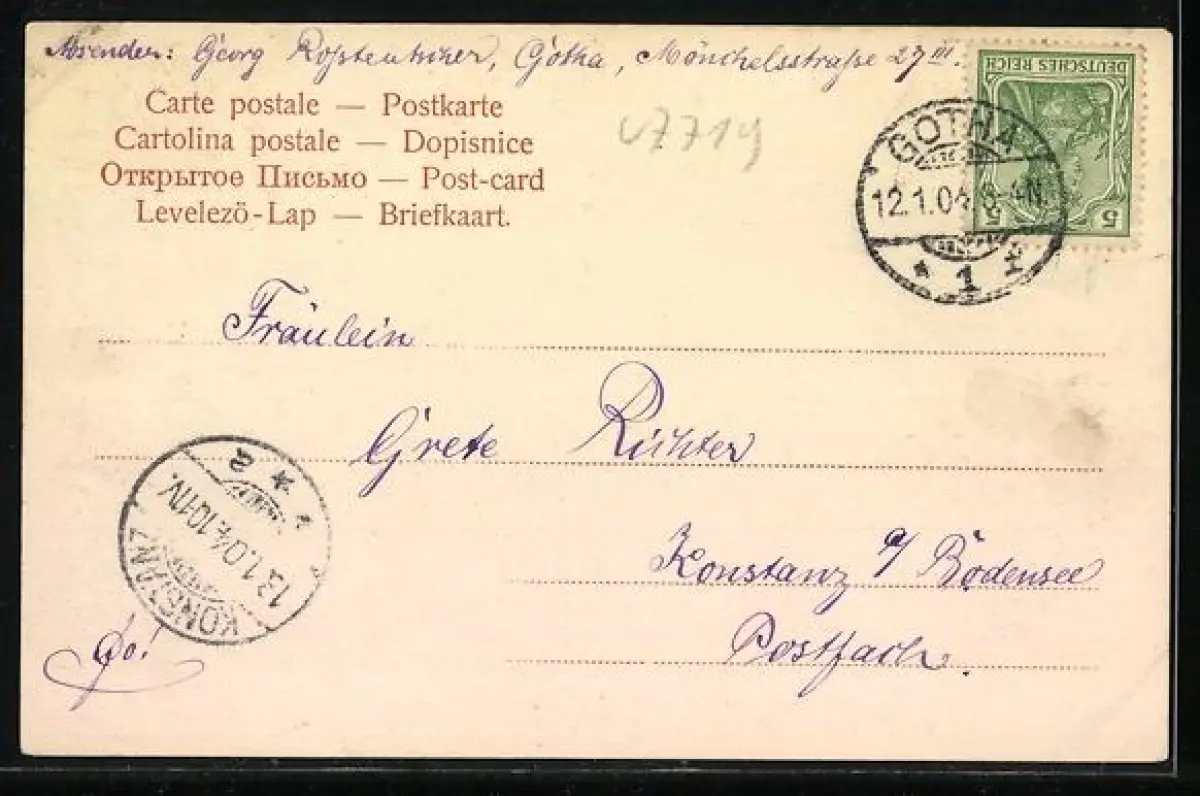 Absender: Georg Gotha, Mönchelsstraße 27 III.
Carte postale — Postkarte
Cartolina postale — Dopisnice
Открытое Письмо — Post-card
Levelezö-Lap — Briefkaart.
07719
DEUTSCHES REICH
5 5
GOTHA
12.1.04. 3-4N.
* 1
Fräulein
Grete Richter
Konstanz a/ Bodensee
Postfach.
KONSTANZ
13.1.04. 10-11V.
* 2